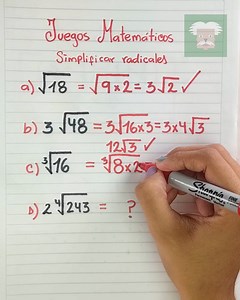 Juegos Matemáticos
Simplificar radicales
a) √18 = √9×2 = 3√2 ✓
b) 3√48 = 3√16×3 = 3×4√3
12√3 ✓
c) ³√16 = ³√8×2
D) 2⁴√243 = ?
Sharpie